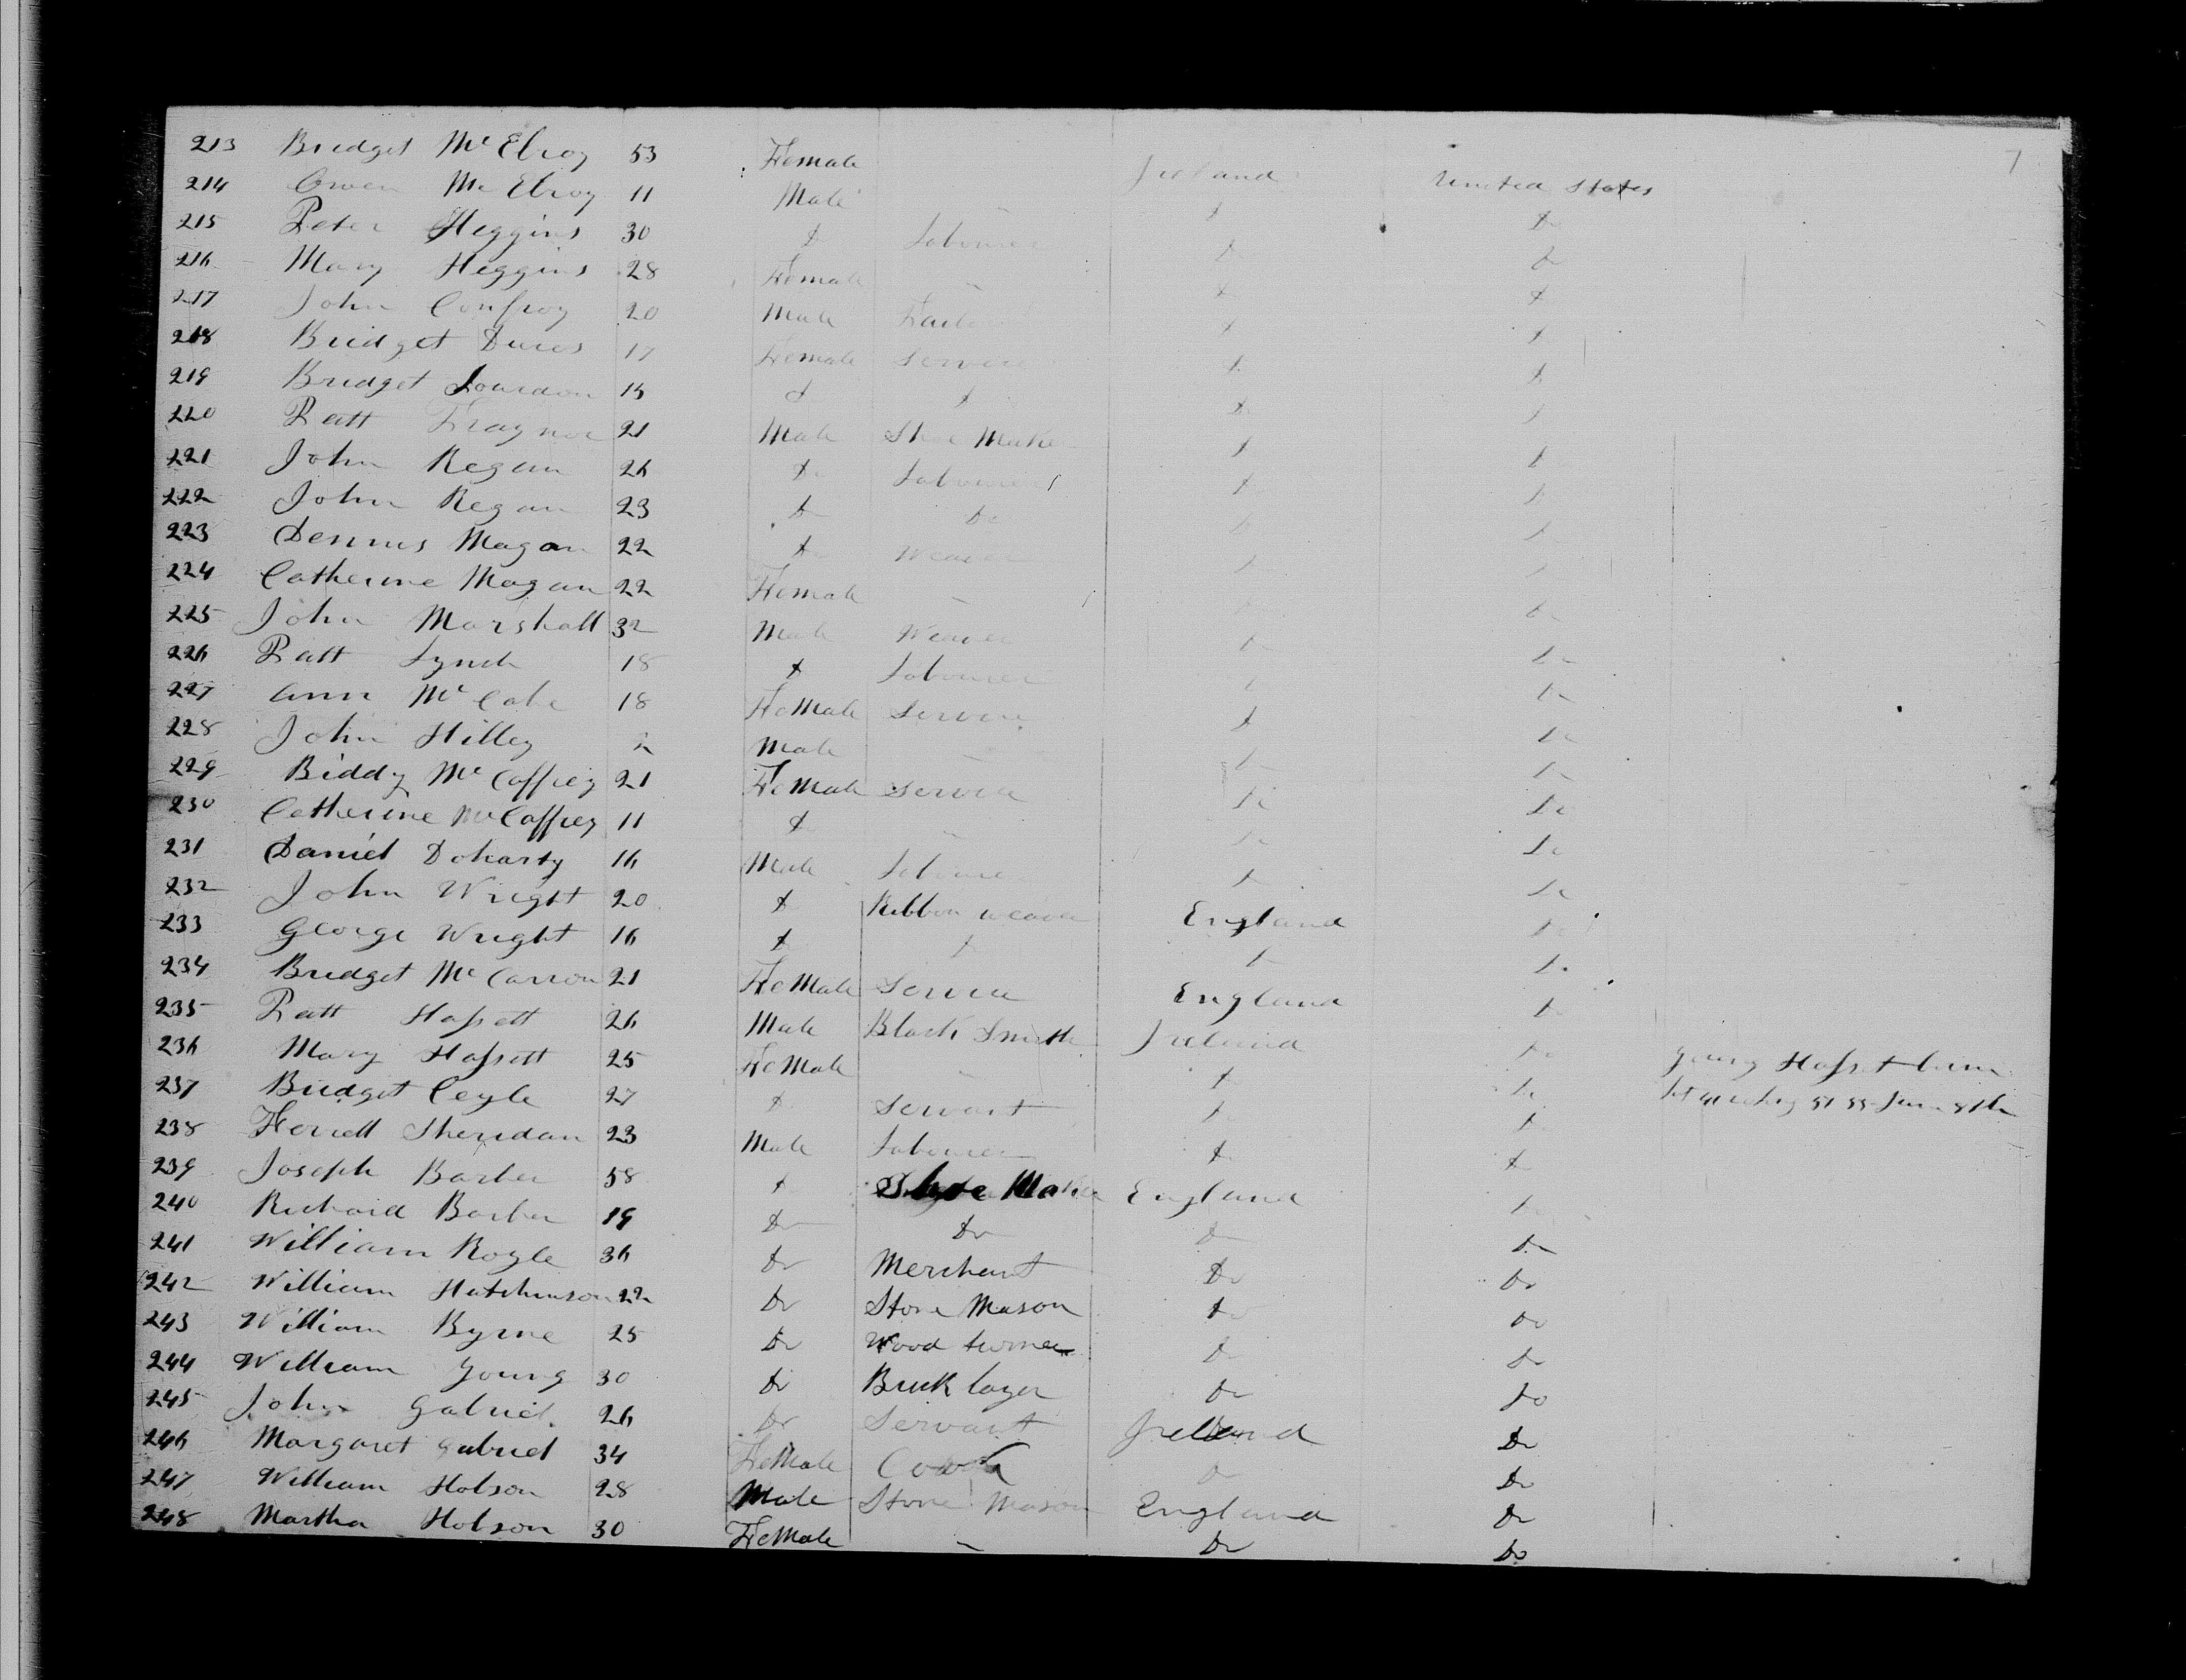 7
213 Bridget McElroy 53 Female Ireland United States
214 Owen McElroy 11 Male - Do Do
215 Peter Heggins 30 Do Labourer Do Do
216 Mary Heggins 28 Female - Do Do
217 John Confroy 20 Male Do Do
218 Bridget 17 Female Do Do
219 Bridget 15 Do Do Do Do
220 Patt 21 Male Shoe Maker Do Do
221 John Regan 26 Do Labourer Do Do
222 John Regan 23 Do Do Do Do
223 Dennis Magan 22 Do Weaver Do Do
224 Catherine Magan 22 Female - Do Do
225 John Marshall 32 Male Weaver Do Do
226 Patt Lynch 18 Do Labourer Do Do
227 Ann McCabe 18 FeMale Do Do
228 John Hilley 2 Male - Do Do
229 Biddy McCaffrey 21 FeMale Do Do
230 Catherine McCaffrey 11 Do - Do Do
231 Daniel Doharty 16 Male Labourer Do Do
232 John Wright 20 Do Ribbon weaver England Do
233 George Wright 16 Do Do Do Do
234 Bridget McCarron 21 FeMale England Do
235 Patt Hassett 26 Male Black Smith Ireland Do
236 Mary Hassett 25 FeMale - Do Do young Hassett
237 Bridget 27 Do Servant Do Do
238 Ferrell Sheridan 23 Male Labourer Do Do
239 Joseph Barber 58 Do Shoe Maker England Do
240 Richard Barber 19 Do Do Do Do
241 William Royle 36 Do Merchant Do Do
242 William Hutchinson 22 Do Stone Mason Do Do
243 William Byrne 25 Do Wood turner Do Do
244 William Young 30 Do Brick layer Do Do
245 John Gabriel 26 Do Servant Ireland Do
246 Margaret Gabriel 34 FeMale Cook Do Do
247 William Hobson 28 Male Stone Mason England Do
248 Martha Hobson 30 FeMale - Do Do